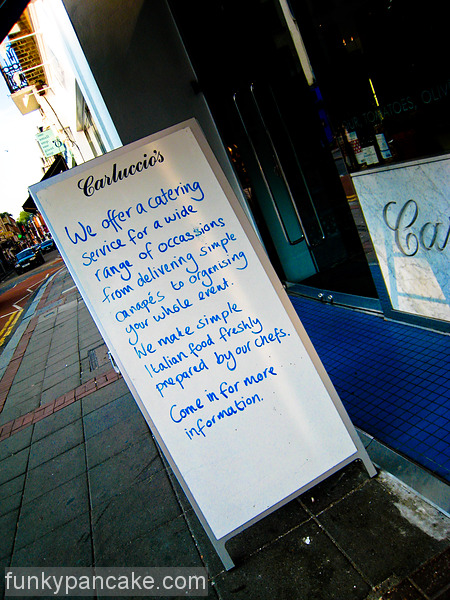 Carluccio's
We offer a catering
service for a wide
range of occassions
from delivering simple
canapés to organising
your whole event.
We make simple
Italian food freshly
prepared by our chefs.
Come in for more
information.
Ca
funkypancake.com